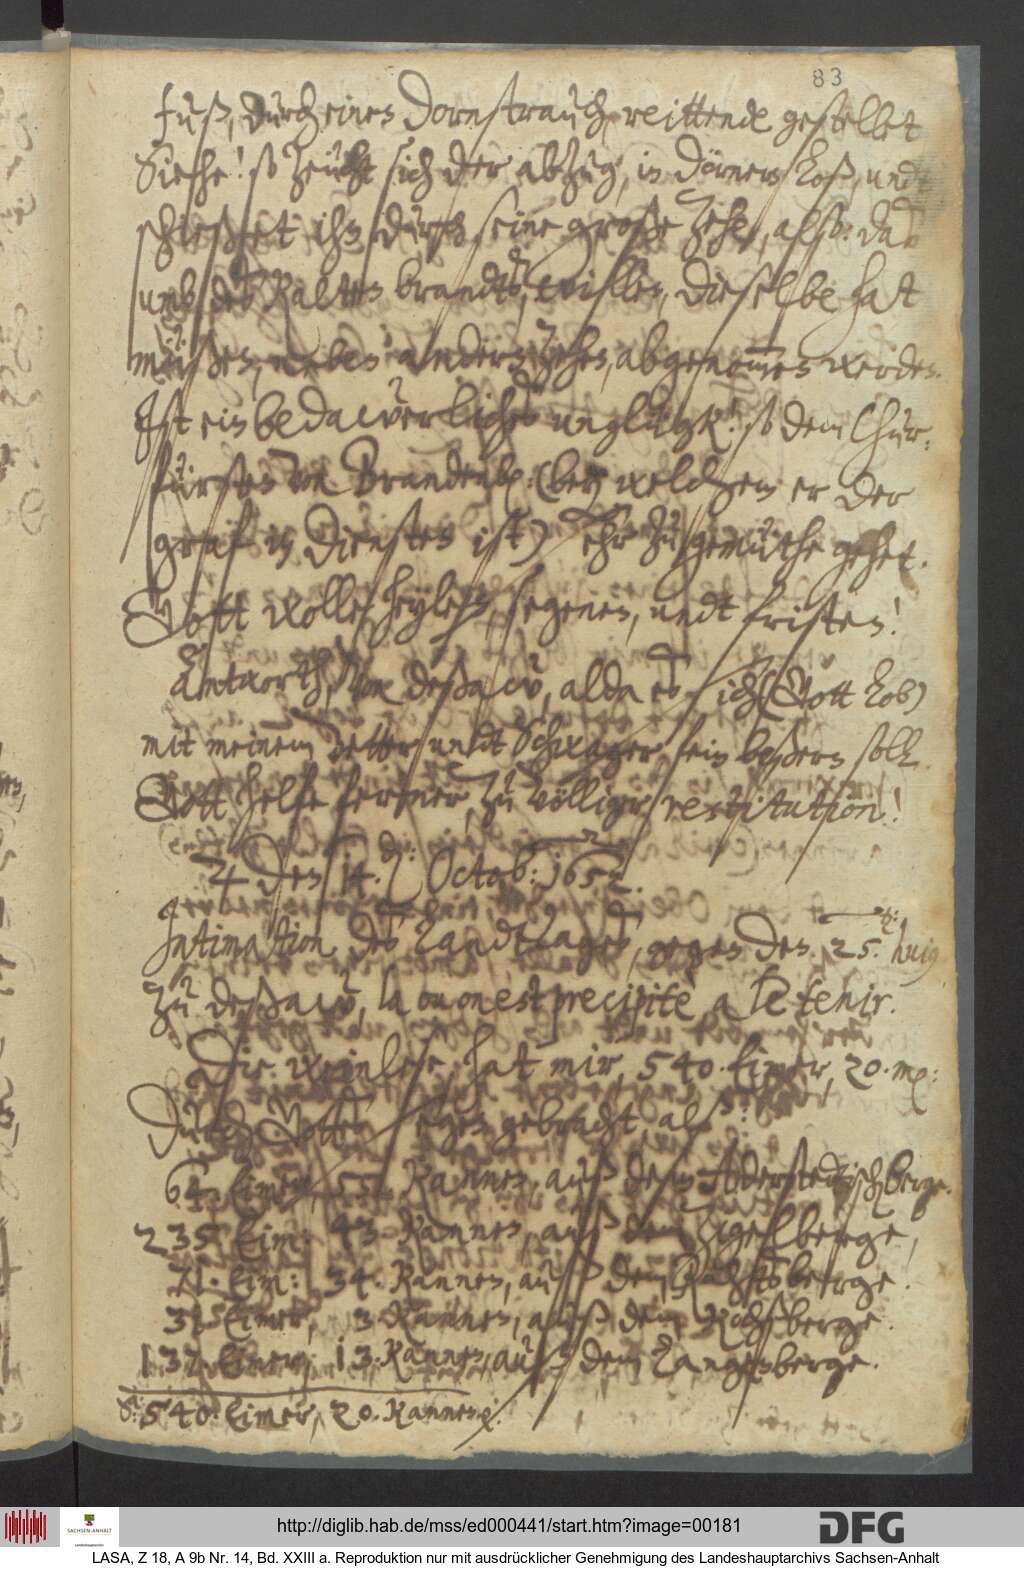 83
fuß, durch einen Dornstrauch, reittende gestellet
Siehe! so zeucht sich der abzug, in Dörnern loß, undt
schießet ihm durch seine große Zehe, also: daß
umb des kalten brandts willen, dieselbe hat
müßen, neben andern Zehen, abgenommen werden.
Ist ein bedawerliches unglück! so dem Chur-
fürsten von Brandenb: (bey welchem er der
graf in Diensten ist) sehr zu gemüthe gehet.
Gott wolle heylen, segenen, undt fristen!
Antwortt, von Deßaw, alda es sich (Gott lob)
mit meinem Vetter undt Schwager, fein beßern soll.
Gott helfe ferrner zu völliger restitution!
♃ den 14. Octob: 1652.
Intimation des Landtages, gegen den. 25. huius
zu Deßaw, la ou on est precipitè, a le tenir.
Die weinlese, hat mir, 540. Eimer, 20.
Durch Gottes segen gebracht alß:
64. Eimer, Kannen, auß dem Aderstedtischen berge.
235 Eim: 43 Kannen, auß dem Zigelberge,
71. Eim: 34. Kannen, auß dem berge.
Eimer, 3 Kannen, auß dem berge.
137 Eimer, 13. Kannen, auß dem Langenberge.
540. Eimer, 20. Kannen.
http://diglib.hab.de/mss/ed000441/start.htm?image=00181
DFG
SACHSEN-ANHALT
LASA, Z 18, A 9b Nr. 14, Bd. XXIII a. Reproduktion nur mit ausdrücklicher Genehmigung des Landeshauptarchivs Sachsen-Anhalt